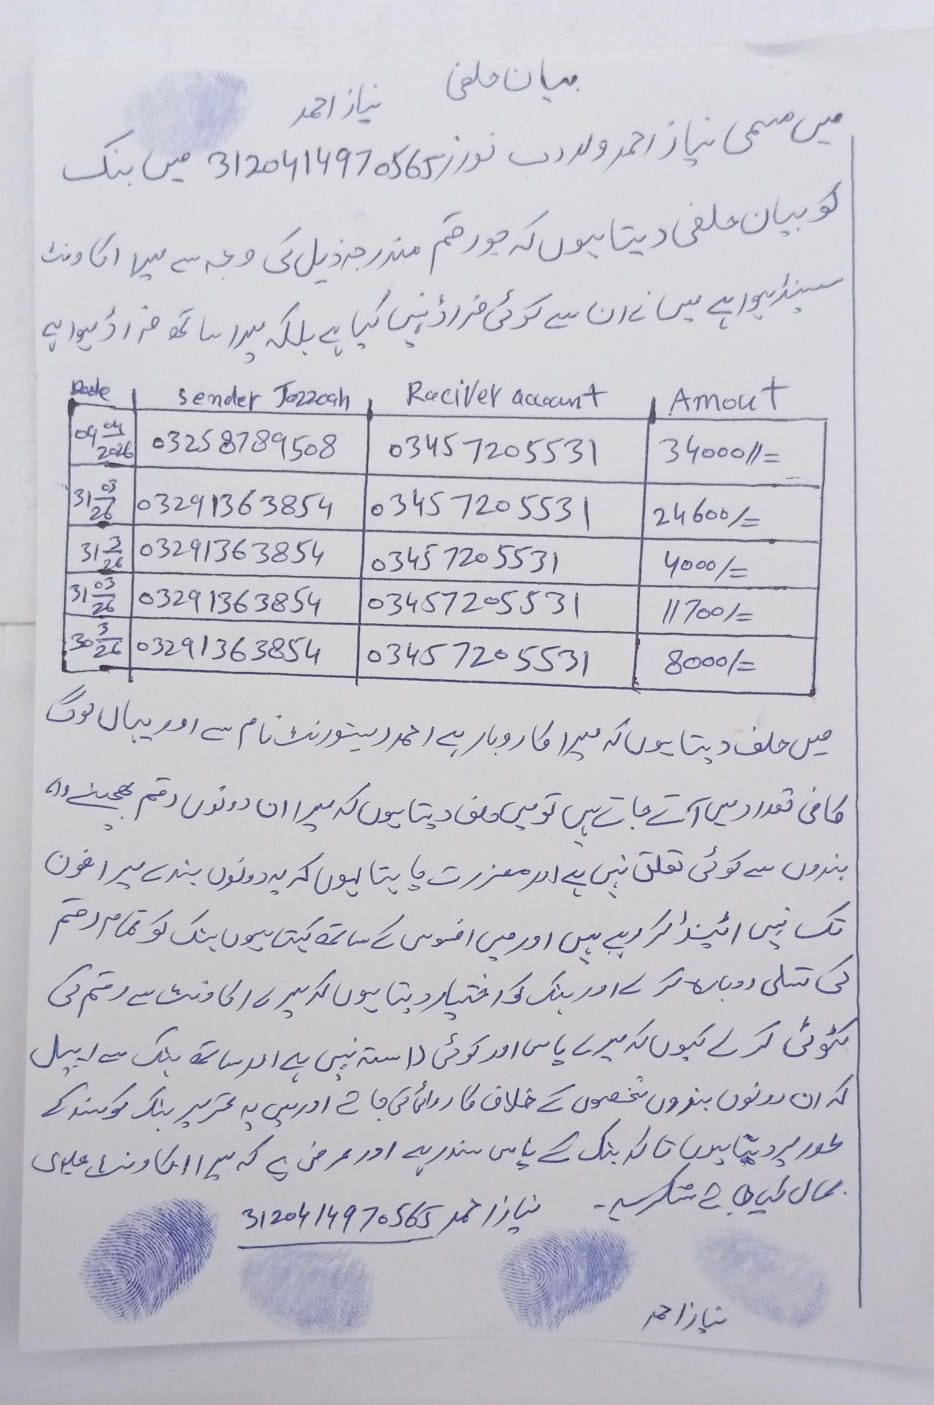 بیان حلفی
نیاز احمد
میں مسمی نیاز احمد ولد رب نواز 3120414970565 میں بنک
کو بیان حلفی دیتا ہوں کہ جو رقم مندرجہ ذیل کی وجہ سے میرا اکاونٹ
سسپنڈ ہوا ہے میں نے ان سے کوئی فراڈ نہیں کیا ہے بلکہ میرے ساتھ فراڈ ہوا ہے
Date sender Jazzcash Raciver account Amout
09 04 2026 03258789508 03457205531 34000//=
31 03/26 03291363854 03457205531 24600/=
31 3/26 03291363854 03457205531 4000/=
31 03/26 03291363854 03457205531 11700/=
30 3/26 03291363854 03457205531 8000/=
میں حلف دیتا ہوں کہ میرا کاروبار ہے احمد ریسٹورنٹ نام سے اور یہاں لوگ
کافی تعداد میں آتے جاتے ہیں تو میں حلف دیتا ہوں کہ میرا ان دونوں رقم بھیجنے والے
بندوں سے کوئی تعلق نہیں ہے اور معزرت چاہتا ہوں کہ یہ دونوں بندے میرا فون
تک نہیں اٹینڈ کر رہے ہیں اور میں افسوس کے ساتھ کہتا ہوں بنک کو تمام رقم
کی تسلی دوبارہ کرے اور بنک کو اختیار دیتا ہوں کہ میرے اکاونٹ سے رقم کی
کٹوتی کر لے کیوں کہ میرے پاس اور کوئی راستہ نہیں ہے اور ساتھ بنک سے اپیل
کہ ان دونوں بندوں شخصوں کے خلاف کاروائی کی جائے اور میں یہ تحریر بنک کو سند کے
طور پر دیتا ہوں تاکہ بنک کے پاس سند رہے اور عرض ہے کہ میرا اکاونٹ جلدی
بحال کیا جائے شکریہ۔ نیاز احمد 3120414970565
نیاز احمد